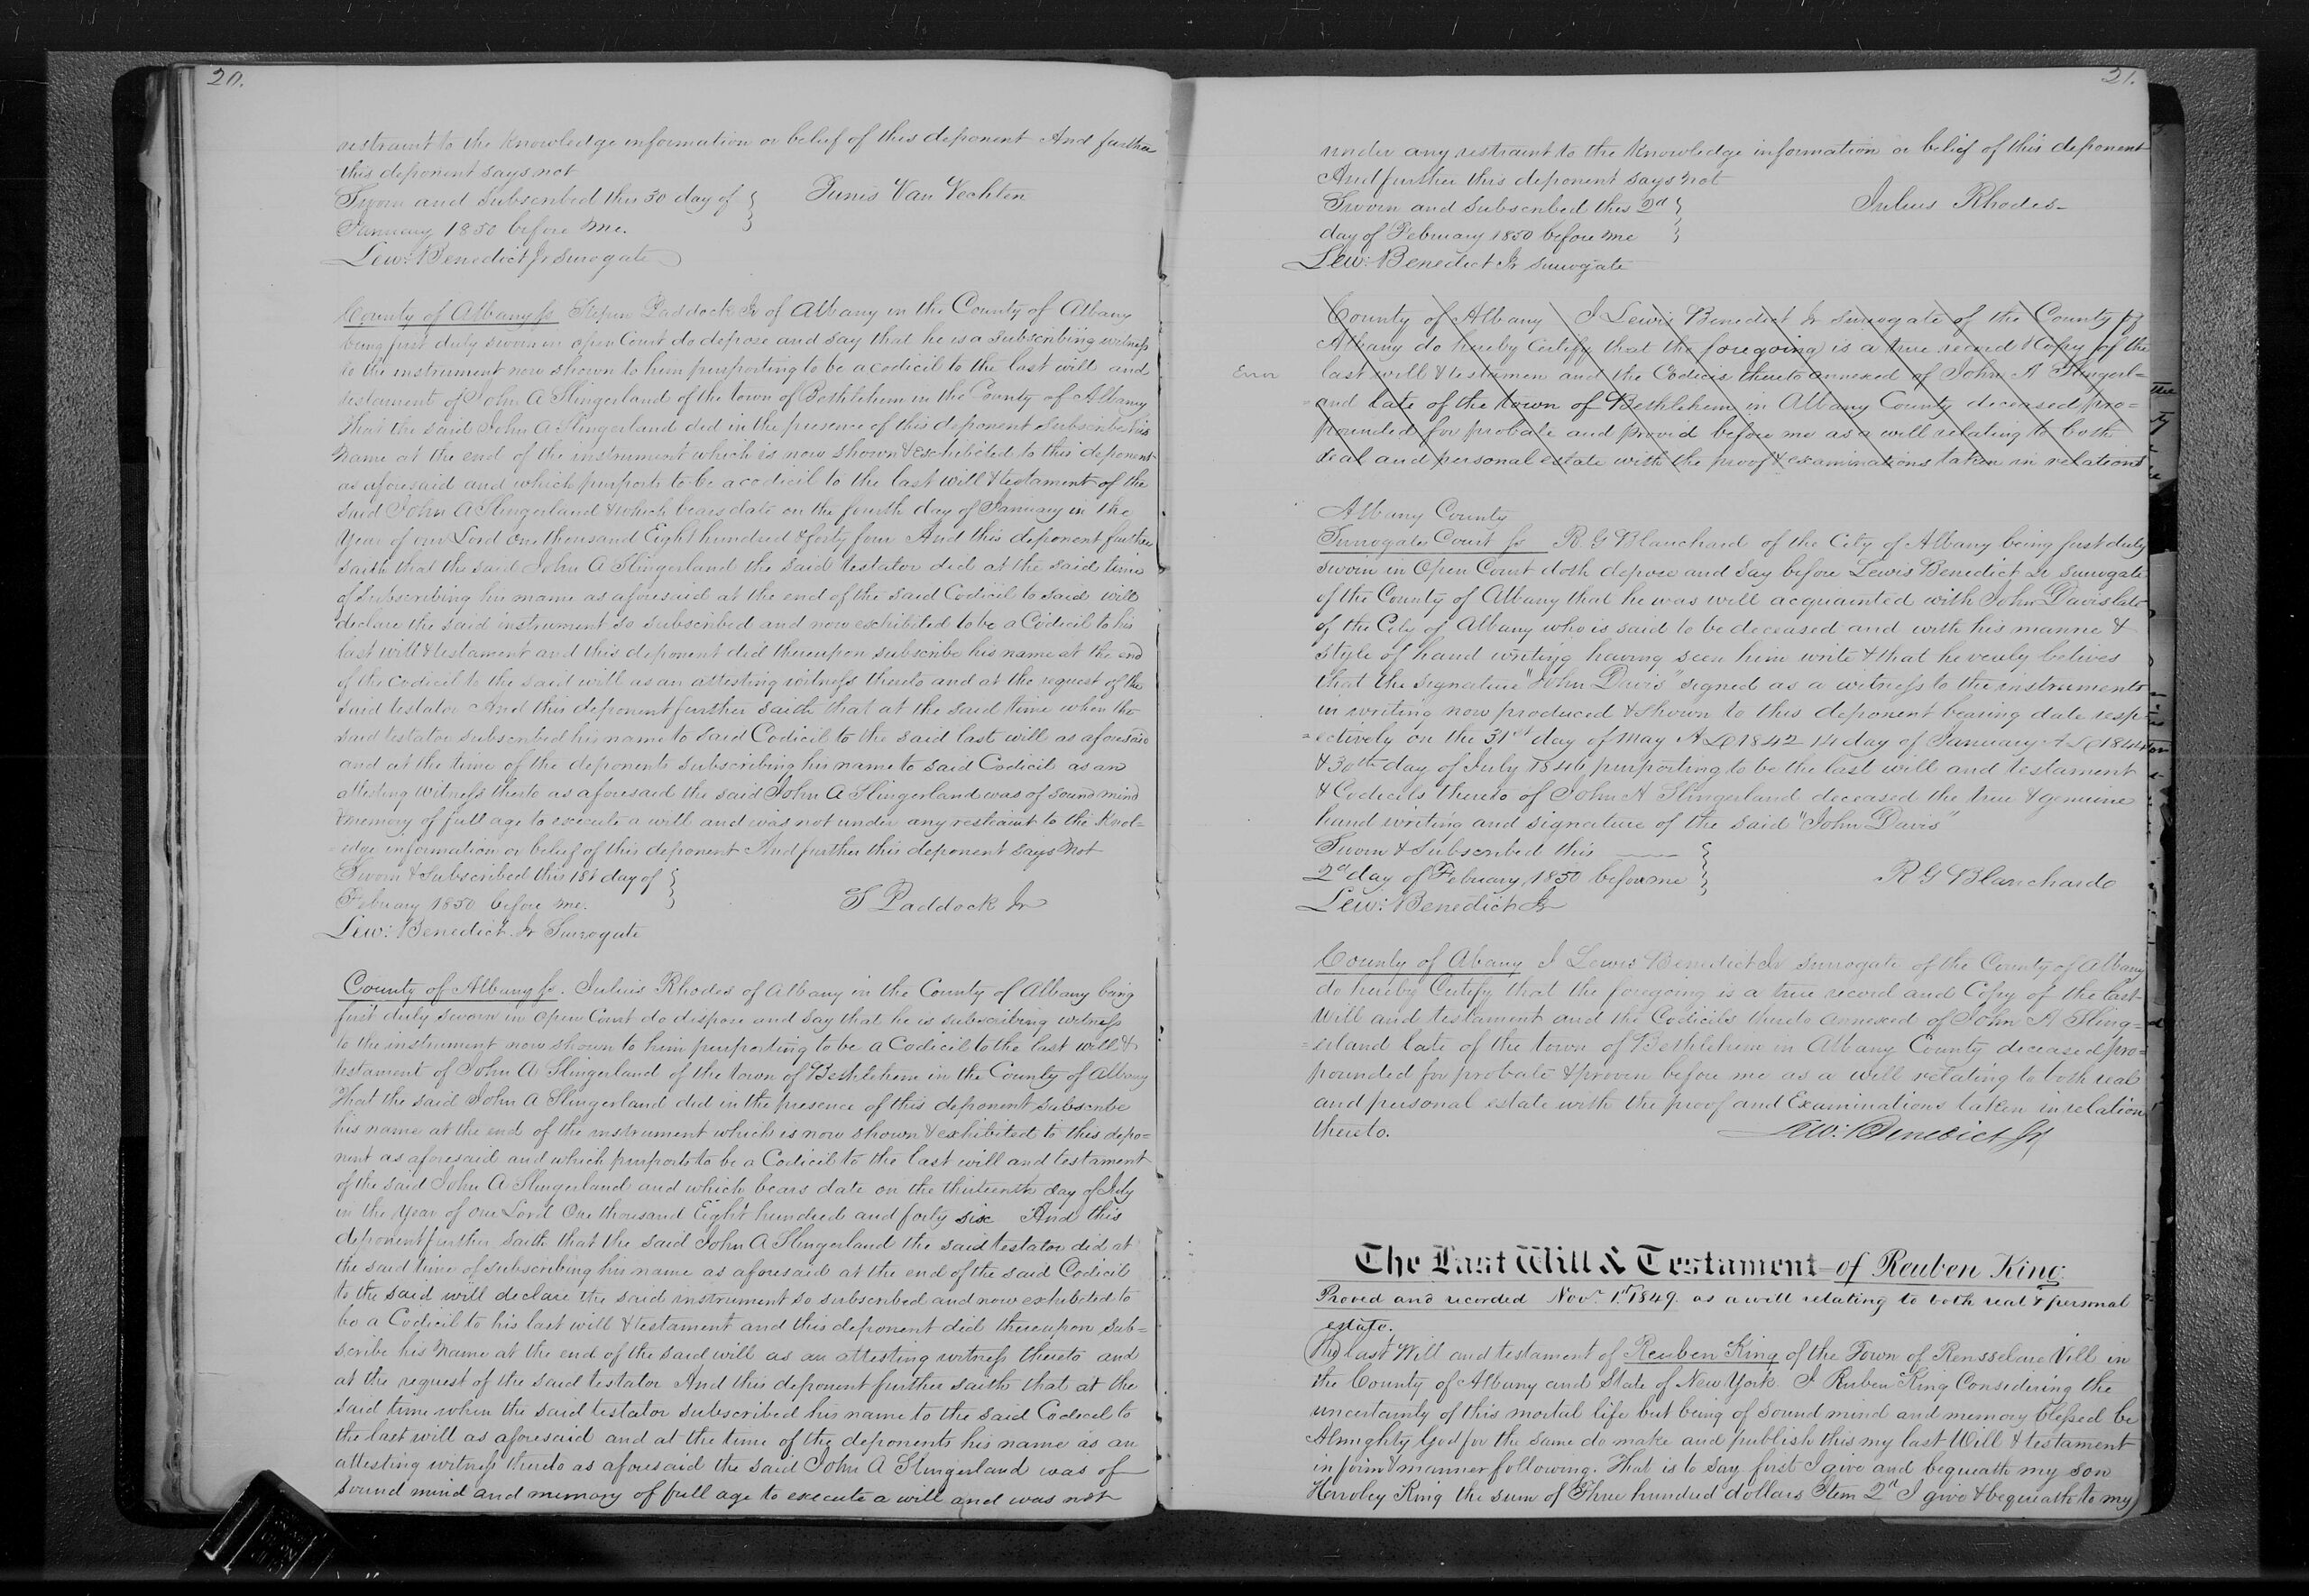 20.
restraint to the Knowledge information or belief of this deponent And further
this deponent says not
Sworn and Subscribed this 30 day of
Tunis Van Vechten
January 1850 before me.
Lew: Benedict Jr Surrogate
County of Albany ss Stepen Paddock Jr of Albany in the County of Albany
being first duly sworn in open Court do depose and say that he is a subscribing witness
to the instrument now shown to him purporting to be a codicil to the last will and
testament of John A Slingerland of the town of Bethlehem in the County of Albany
That the said John A Slingerland did in the presence of this deponent Subscribe his
name at the end of the instrument which is now shown & exhibited to this deponent
as aforesaid and which purports to be a codicil to the last will & testament of the
said John A Slingerland & which bears date on the fourth day of January in the
Year of our Lord One thousand Eight hundred & forty four And this deponent further
saith that the said John A Slingerland the said testator did at the said time
of subscribing his name as aforesaid at the end of the said Codicil to said will
declare the said instrument so subscribed and now exhibited to be a Codicil to his
last will & testament and this deponent did thereupon subscribe his name at the end
of the codicil to the said will as an attesting witness thereto and at the request of the
said testator And this deponent further saith that at the said time when the
said testator subscribed his name to said Codicil to the said last will as aforesaid
and at the time of the deponents subscribing his name to said Codicil as an
attesting witness thereto as aforesaid the said John A Slingerland was of sound mind
& memory of full age to execute a will and was not under any restraint to the Knol=
edge information or belief of this deponent And further this deponent says not
Sworn & Subscribed this 1st day of
February 1850 before me.
S Paddock Jr
Lew: Benedict Jr Surrogate
County of Albany ss. Julius Rhodes of Albany in the County of Albany being
first duly sworn in open Court do depose and say that he is subscribing witness
to the instrument now shown to him purporting to be a Codicil to the last will &
testament of John A Slingerland of the town of Bethlehem in the County of Albany
That the said John A Slingerland did in the presence of this deponent subscribe
his name at the end of the instrument which is now shown & exhibited to this depo=
nent as aforesaid and which purports to be a Codicil to the last will and testament
of the said John A Slingerland and which bears date on the thirteenth day of July
in the Year of our Lord One thousand Eight hundred and forty six And this
deponent further saith that the said John A Slingerland the said testator did at
the said time of subscribing his name as aforesaid at the end of the said Codicil
to the said will declare the said instrument so subscribed and now exhibited to
be a Codicil to his last will & testament and this deponent did thereupon sub=
scribe his name at the end of the said will as an attesting witness thereto and
at the request of the said testator And this deponent further saith that at the
said time when the said testator subscribed his name to the said Codicil to
the last will as aforesaid and at the time of the deponents his name as an
attesting witness thereto as aforesaid the said John A Slingerland was of
sound mind and memory of full age to execute a will and was not
21.
under any restraint to the Knowledge information or belief of this deponent
And further this deponent says not
Sworn and Subscribed this 2d
Julius Rhodes
day of February 1850 before me
Lew: Benedict Jr Surrogate
County of Albany I Lewis Benedict Jr Surrogate of the County of
Albany do hereby Certify that the foregoing is a true record & Copy of the
Error last will & testamen and the Codicis thereto annexed of John A Slingerl=
and late of the town of Bethlehem in Albany County deceased pro=
pounded for probate and provid before me as a will relating to both
real and personal estate with the proof & examinations taken in relations
Albany County
Surrogates Court ss R. G Blanchard of the City of Albany being first duly
sworn in Open Court doth depose and Say before Lewis Benedict Jr Surrogate
of the County of Albany that he was well acquainted with John Davis late
of the City of Albany who is said to be deceased and with his manne &
style of hand writing having seen him write & that he verily belives
that the signature "John Davis" signed as a witness to the instruments
in writing now produced & shown to this deponent bearing date resp=
=ectively on the 31st day of May A D 1842 14 day of January A D 1844
& 30th day of July 1846 purporting to be the last will and testament
& Codicils thereto of John A Slingerland deceased the true & genuine
hand writing and signature of the said "John Davis"
Sworn & Subscribed this
2d day of February 1850 before me
R G Blanchard
Lew: Benedict Jr
County of Abany I Lewis Benedict Jr Surrogate of the County of Albany
do hereby Certify that the foregoing is a true record and Copy of the last
Will and testament and the Codicils thereto annexed of John A Sling=
=erland late of the town of Bethlehem in Albany County deceased pro=
pounded for probate & proven before me as a will relating to both real
and personal estate with the proof and Examinations taken in relation
thereto.
Lew: Benedict Jr
The Last Will & Testament of Reuben King.
Proved and recorded Novr 1st 1849. as a will relating to both real & personal
estate.
The last Will and testament of Reuben King of the Town of Rensselaer Vill in
the County of Albany and State of New York. I Ruben King Considering the
uncertainty of this mortal life but being of sound mind and memory blessed be
Almighty God for the same do make and publish this my last Will & testament
in form & manner following. That is to say first I give and bequeath my son
Harvley King the sum of Three hundred dollars Item 2d I give & bequeath to my